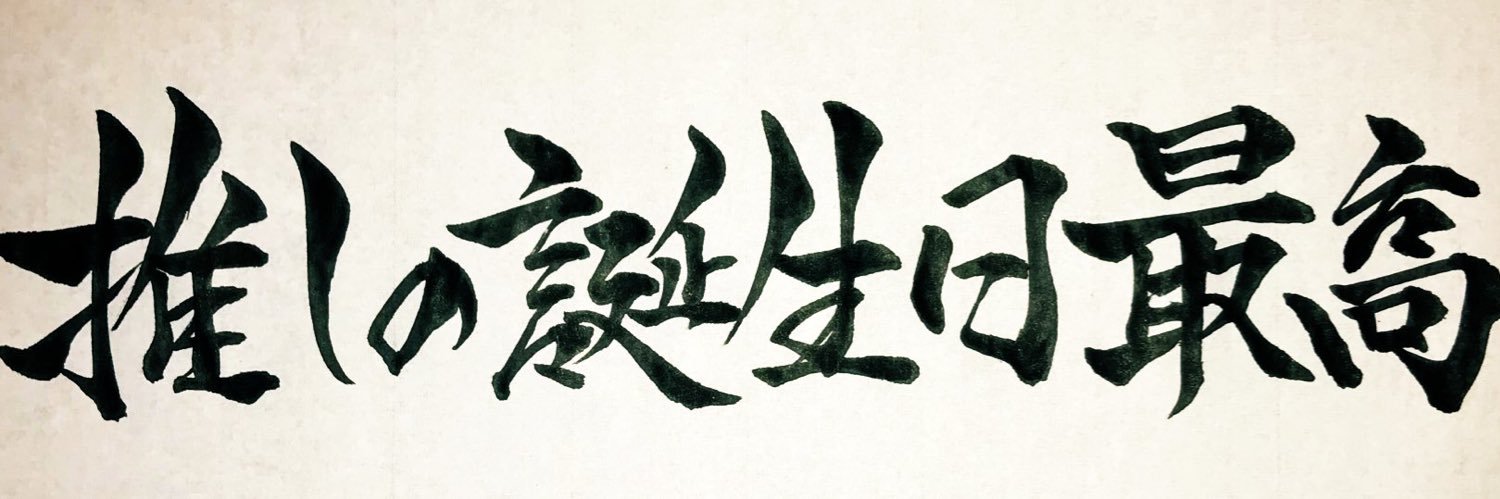 推しの誕生日最高